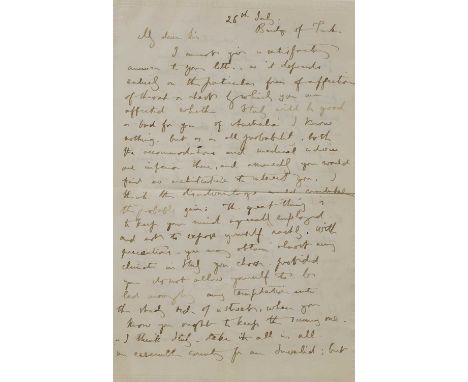 26th July
Bridge of Turk.
My dear Sir,
I cannot give a satisfactory
answer to your letter, as it depends
entirely on the particular form of affection
of throat or chest by which you are
affected whether Italy will be good
or bad for you. of Australia I know
nothing. but as in all probability both
the accommodations and medical advice
are inferior there, and you would
find no to interest you, I
think the disadvantages would
the probable gain: the great thing is
to keep your mind agreeably employed
and not to expose yourself rashly; with
precautions you may obtain almost any
climate in Italy you choose, provided
you do not allow yourself to be
led away by any temptation into
the shady side of a street, when you
know you ought to keep the sunny one -
- I think Italy - take it all in all
an country for an Invalid; but